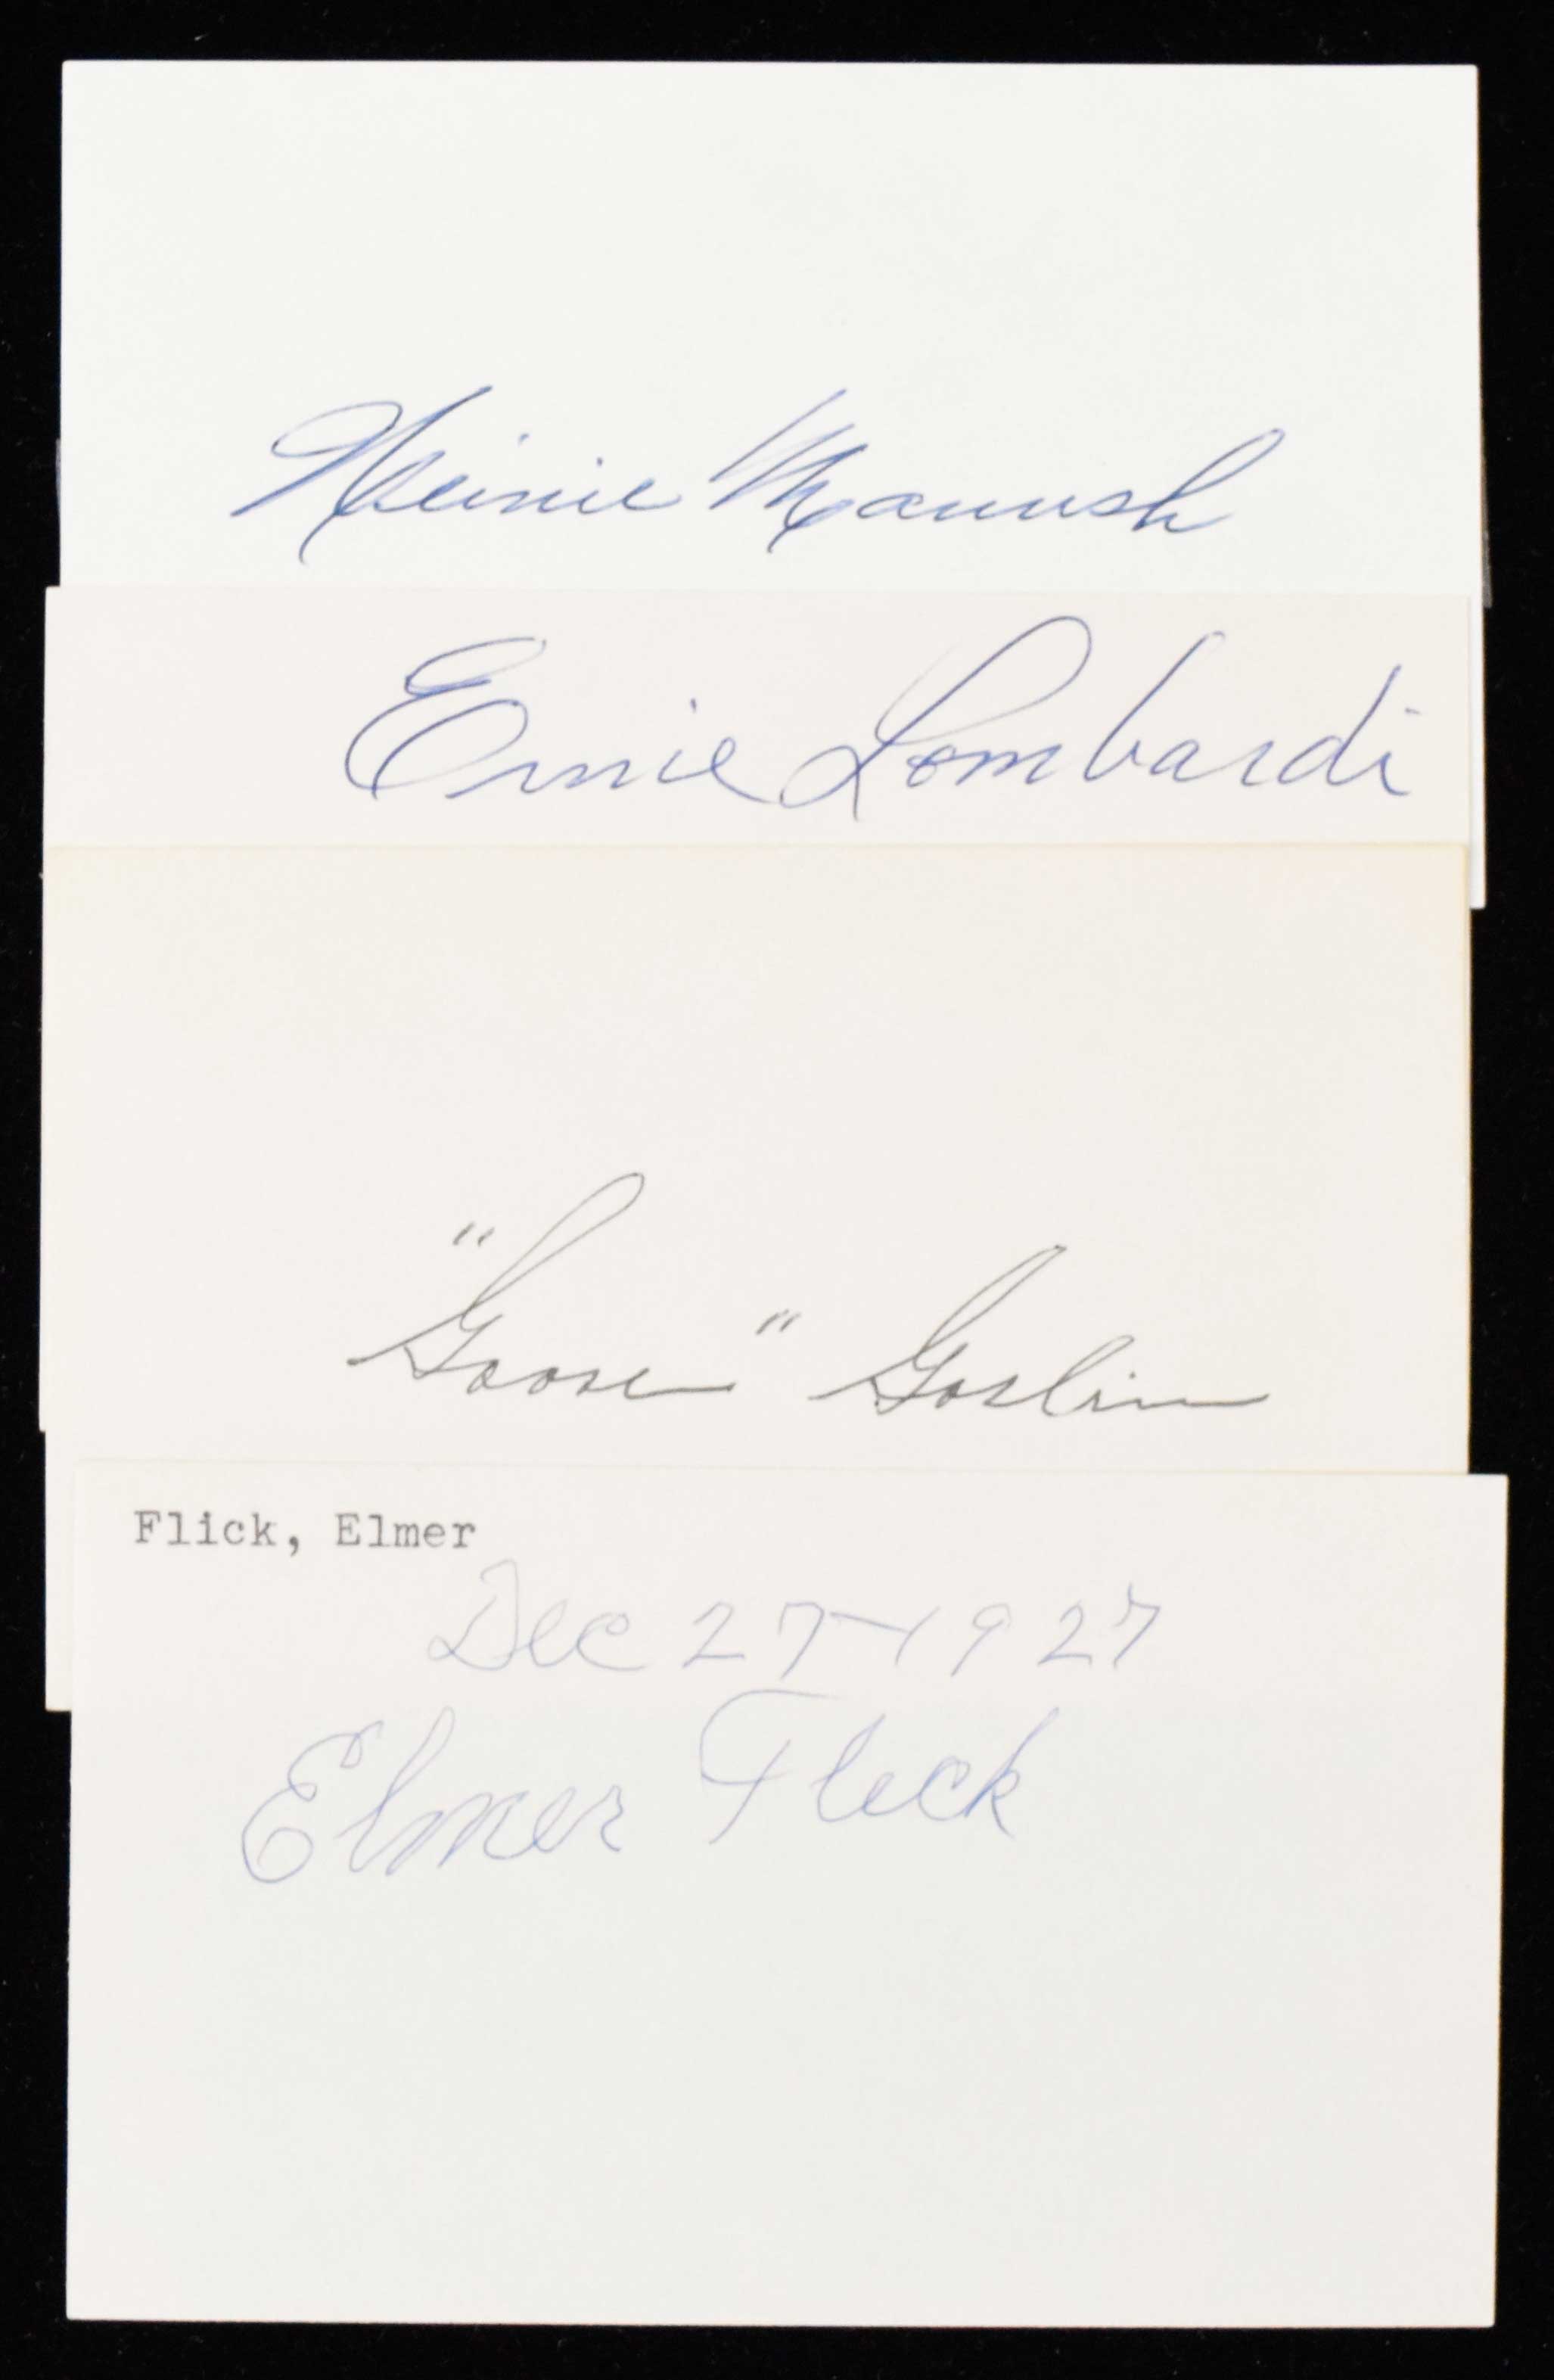 Heinie Manush
Ernie Lombardi
"Goose" Goslin
Flick, Elmer
Dec 27-1927
Elmer Flick